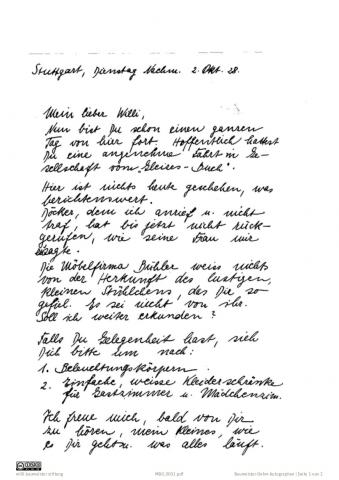 Stuttgart, Dienstag Nachm. 2. Okt. 28.
Mein lieber Willi,
Nun bist Du schon einen ganzen
Tag von hier fort. Hoffentlich hattest
Du eine angenehme Fahrt in Ge-
sellschaft vom "Gleises-Buch".
Hier ist nichts heute geschehen, was
berichtenswert.
Döcker, dem ich anrief u. nicht
traf, hat bis jetzt nicht rück-
gerufen, wie seine Frau mir
sagte.
Die Möbelfirma Bühler weiss nichts
von der Herkunft des lustigen,
kleinen Stühlchens, das Dir so
gefiel. Es sei nicht von ihr.
Soll ich weiter erkunden?
Falls Du Gelegenheit hast, sieh
Dich bitte um nach:
1. Beleuchtungskörpern.
2. Einfache, weisse Kleiderschränke
für Gastzimmer u. Mädchenzim.
Ich freue mich, bald von Dir
zu hören, mein Kleines, wie
es Dir geht u. was alles läuft.
willi baumeister stiftung
MBG_0001.pdf
Baumeister-Grohm Autographen | Seite 1 von 2